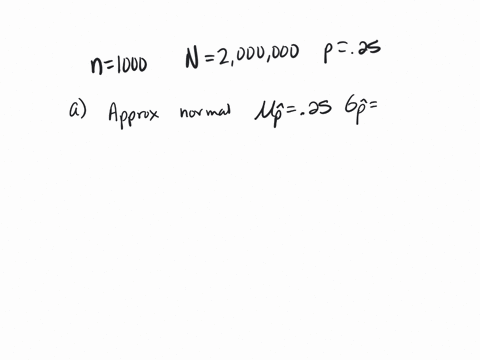 n=1000 N=2,000,000 p=.25
a) Approx normal μp̂=.25 σp̂=